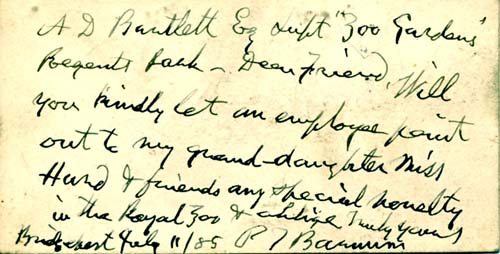 A D Bartlett Esq Supt "Zoo Gardens"
Regents Park – Dear Friend, Will
you kindly let an employee point
out to my grand-daughter Miss
Hurd & friends any special novelty
in the Royal Zoo & oblige Truly yours
Bridgeport July 11/85 P T Barnum